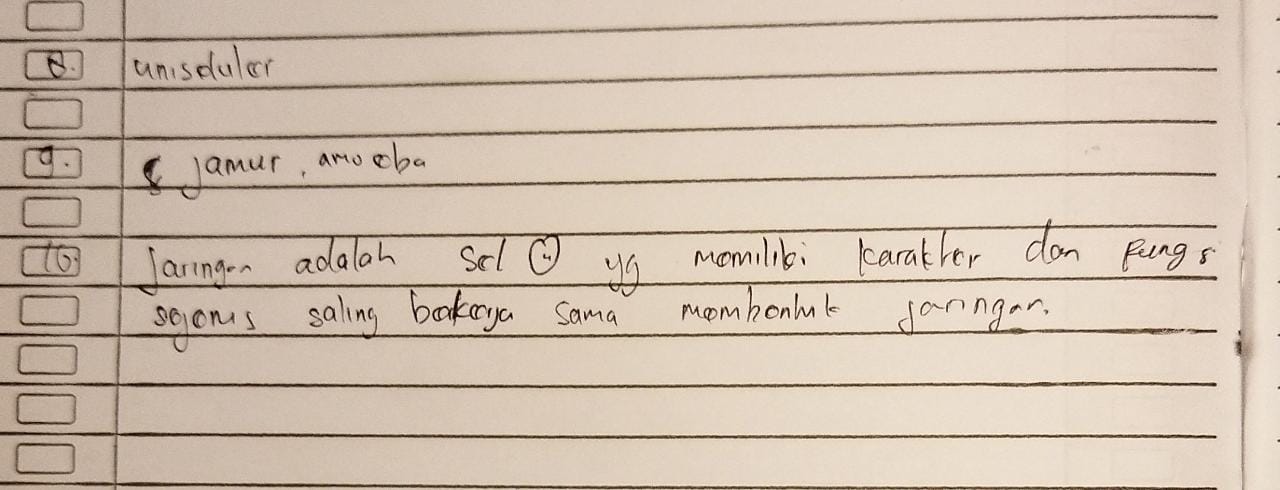 8. uniseluler
9. jamur, amoeba
10. Jaringan adalah sel ② yg memiliki karakter dan fungsi
sejenis saling bekerja sama membentuk jaringan.